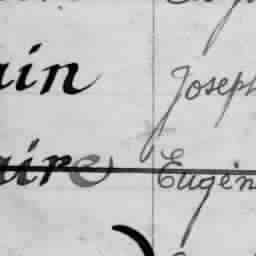 ain Joseph
aire Eugèn